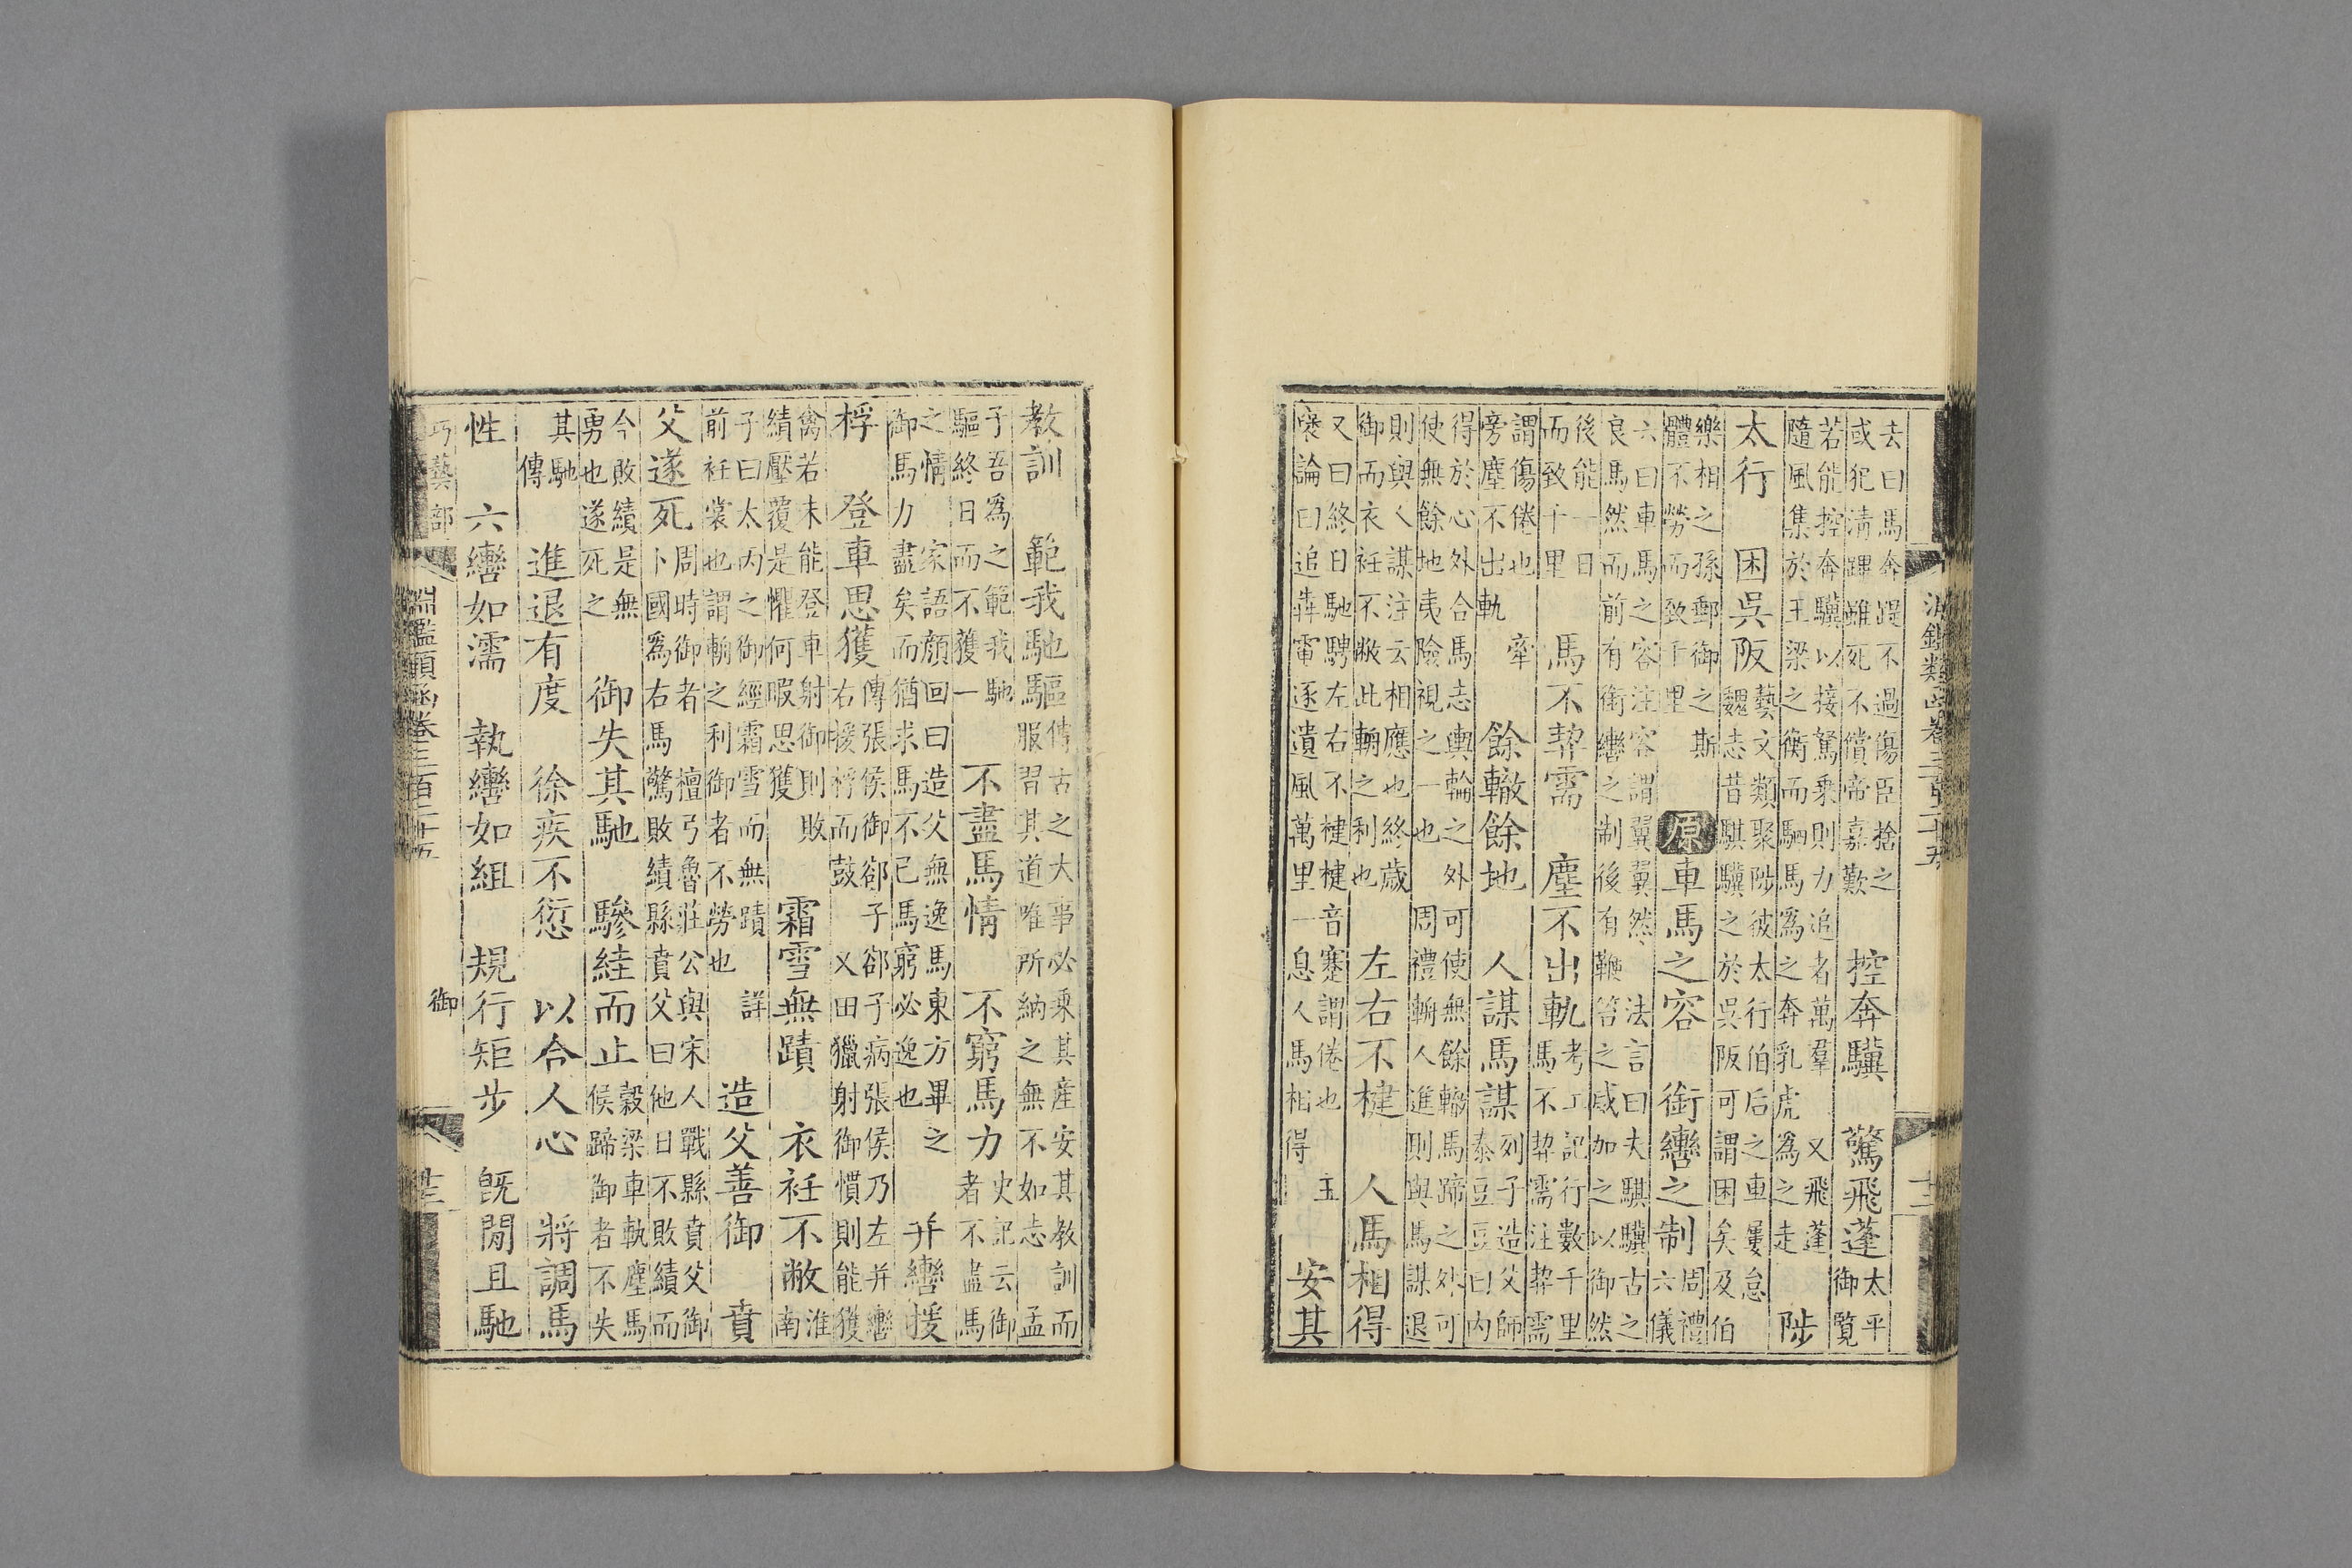 淵鑑類函卷三百二十五 十三
去曰馬奔踶不過傷臣捨之
或犯清蹕雖死不償帝嘉歎
控奔驥 驚飛蓬
太平
御覽
若能控奔驥以接駑乘則力追者萬羣 又飛蓬
隨風集於王梁之衡而駟馬爲之奔乳虎爲之走
陟
太行 困吳阪
藝文類聚陟彼太行伯后之車屢怠
魏志昔騏驥之於吳阪可謂困矣及伯
樂相之孫郵御之斯
體不勞而致千里
原 車馬之容 銜轡之制
周禮
六儀
六曰車馬之容注容謂翼翼然 法言曰夫騏驥古之
良馬然而前有銜轡之制後有鞭笞之威加之以御然
後能一日
而致千里
馬不契需 塵不出軌
考工記行數千里
馬不契需注契需
謂傷倦也 牽
旁塵不出軌
餘轍餘地 人謀馬謀
列子造父師
泰豆豆曰内
得於心外合馬志輿輪之外可使無餘轍馬蹄之外可
使無餘地夷險視之一也 周禮輈人進則與馬謀退
則與人謀注云相應也終歲
御而衣衽不敝此輈之利也
左右不楗 人馬相得
又曰終日馳騁左右不楗楗音蹇謂倦也 王
褒論曰追犇電逐遺風萬里一息人馬相得
安其
教訓 範我馳驅
傳古之大事必乘其產安其教訓而
服習其道唯所納之無不如志 孟
子吾爲之範我馳
驅終日而不獲一
不盡馬情 不窮馬力
史記云御
者不盡馬
之情 家語顏回曰造父無逸馬東方畢之
御馬力盡矣而猶求馬不已馬窮必逸也
并轡援
桴 登車思獲
傳張侯御郤子郤子病張侯乃左并轡
右援桴而鼓 又田獵射御慣則能獲
禽若未能登車射御則敗
績壓覆是懼何暇思獲
霜雪無蹟 衣衽不敝
淮
南
子曰太丙之御經霜雪而無蹟 詳
前衽裳也謂輈之利御者不勞也
造父善御 賁
父遂死
周時御者 檀弓魯莊公與宋人戰縣賁父御
卜國爲右馬驚敗績縣賁父曰他日不敗績而
今敗績是無
勇也遂死之
御失其馳 驂絓而止
穀梁車軌塵馬
候蹄御者不失
其馳
傳
進退有度 徐疾不愆 以令人心 將調馬
性 六轡如濡 執轡如組 規行矩步 既閒且馳
巧藝部 淵鑑類函卷三百二十五 御 十三